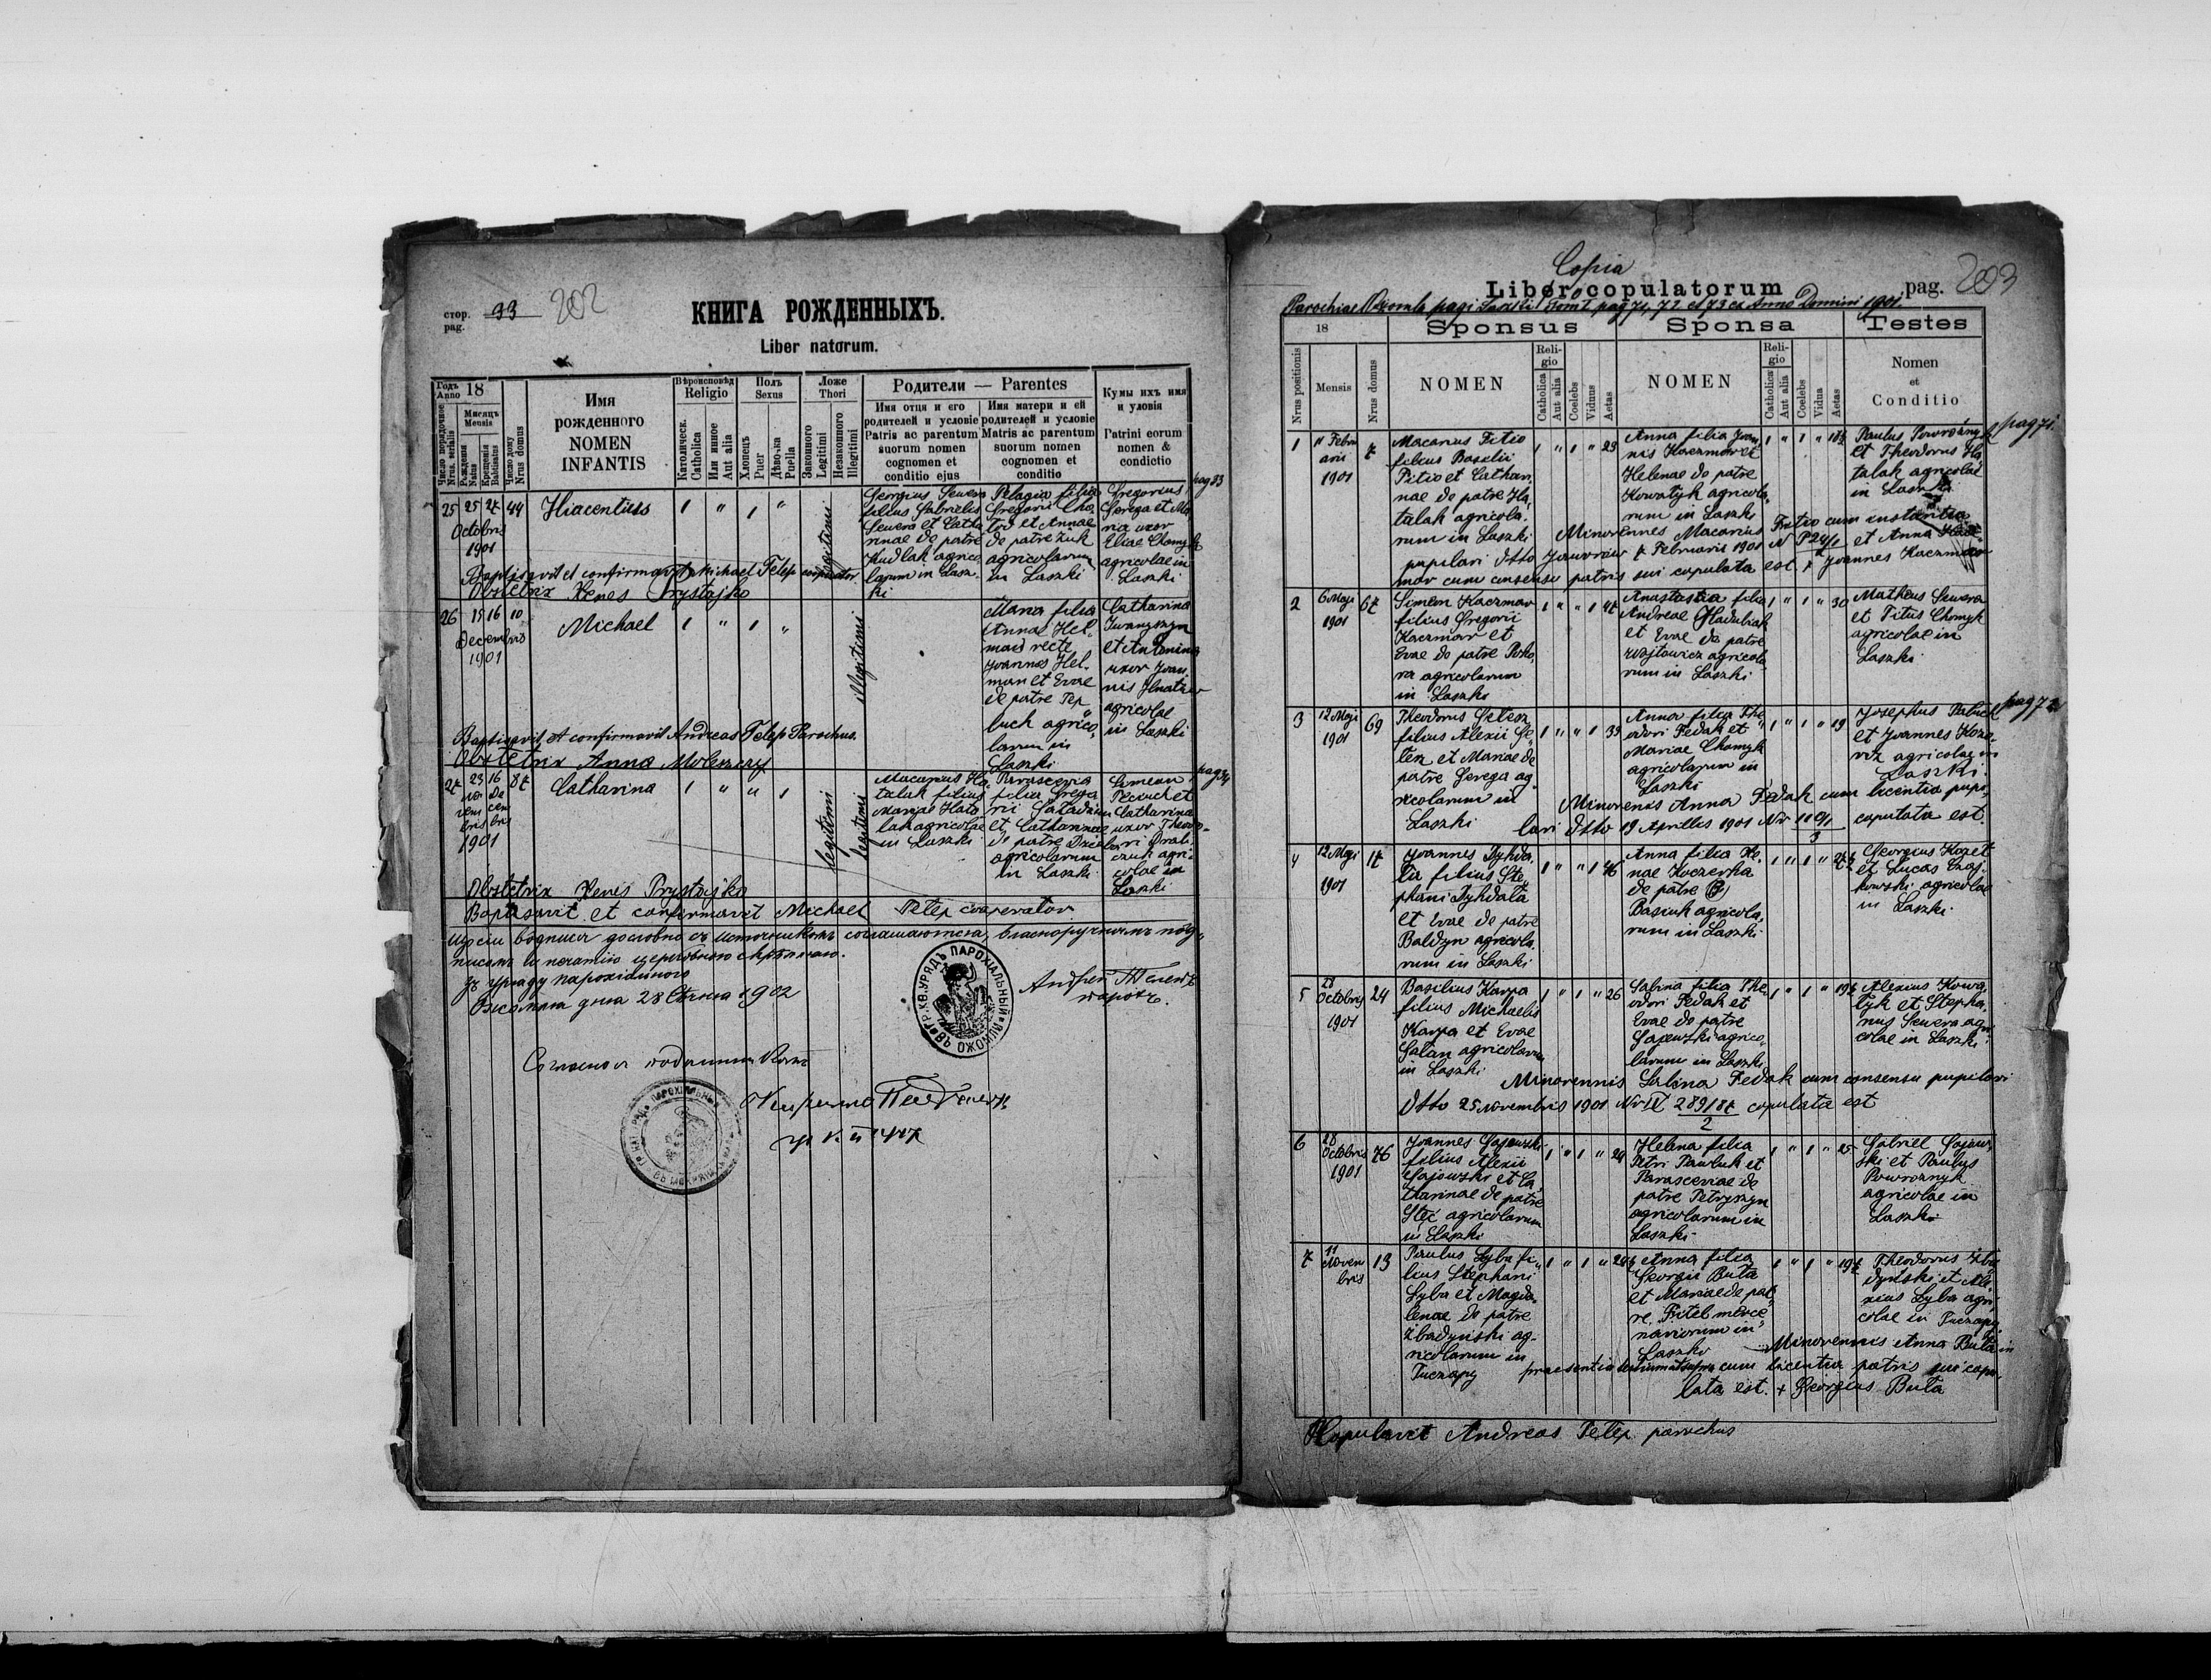 стор. 33 202
pag.
КНИГА РОЖДЕННЫХЪ.
Liber natorum.
Годъ 18
Anno
Число порядочное
Nrus. serialis
Мисяцъ
Mensis
Рождения
Natus
Крещенія
Batisatus
Число дому
Nrus domus
Имя
рожденного
NOMEN
INFANTIS
Вѣроисповѣд
Religio
Католическ.
Catholica
Или инное
Aut alia
Полъ
Sexus
Хлопецъ
Puer
Дѣвојка
Puella
Ложе
Thori
Законного
Legitimi
Незаконного
Illegitimi
Родители — Parentes
Имя отця и его
родителей и условіе
Patris ac parentum
suorum nomen
cognomen et
conditio ejus
Имя матери и ей
родителей и условіе
Matris ac parentum
suorum nomen
cognomen et
conditio
Кумы ихъ имя
и уловія
Patrini eorum
nomen &
condictio
pag 33
25 25 27 44 Hiacentius 1 " 1 " legitimi
Octobris
1901
Georgius Sewera
filius Gabrielis
Sewera et Catha
rinae de patre
Kudlak agrico
larum in Lasz-
ki
Pelagia filia
Gregorii Cho-
tvd et Annae
de patre Żuk
agricolarum
in Laszki
Gregorius
Gerega et Ma
ria uxor
Eliae Chomyk
agricolae in
Laszki
Baptisavit et confirmavit Michael Telep cooperator
Obstetrix Xenes Prystajko
26 15 16 10 Michael 1 " 1 " illegitimi
Decembris
1901
Maria filia
Annae Hel-
mais recte
Joannes Hel-
man et Evae
de patre Pep
luch agrico
larum in
Laszki
Catharina
Iwanyszyn
et Antonina
uxor Joan
nis Hnatiw
agricolae
in Laszki
Baptisavit et confirmavit Andreas Telep Parochus.
Obstetrix Anna Moleszczy
pag 34
27 23 16 87 Catharina 1 " " 1 legitimi legitimi
No De
vem cem
bris bris
1901
Macarius Ha
talak filius
Mariae Hata
lak agricolae
in Laszki
Parascevia
filia Grego
rii Gaładziun
et Catharinae
de patre Dzie
agricolarum
in Laszki
Simeon
Pleouch et
Catharina
uxor Theodo-
ri Drali
czuk agri-
colae in
Laszki
Obstetrix Xenes Prystajko
Baptisavit et confirmavit Michael Telep cooperator
Що сіи водписи дословно съ источникомъ соглашаются, власноручнымъ под-
писомъ и печатію церковною стверджаю.
Зъ уряду парохіяльного
Вжомля дня 28 Сѣчня 1902
Андрей Телепъ
парохъ.
ГР. КВ. УРЯДЪ ПАРОХІАЛЬНЫЙ ВЪ ОЖОМЛИ
Согласно съ подлинникомъ
Copia
Liber copulatorum pag. 203
Parochiae Ożomla pagi Laszki Tom I pag 71, 72 et 73 ex Anno Domini 1901.
18
Sponsus Sponsa Testes
Nrus positionis
Mensis
Nrus domus
NOMEN
Religio
Catholica
Aut alia
Coelebs
Viduus
Aetas
NOMEN
Religio
Catholica
Aut alia
Coelebs
Vidua
Aetas
Nomen
et
Conditio
pag 71.
1 11 Febru 7
arii
1901
Macarius Fitio
filius Basilii
Fitio et Cathari
nae de patre Ha
talak agricola-
rum in Laszki
1 " 1 " 23
Anna filia Joan
nis Kaczmar et
Helenae de patre
Kowalyk agricola,
rum in Laszki
1 " 1 " 18½
Paulus Powroźnyk
et Theodorus Ha
talak agricolae
in Laszki
Minorennes Macarius Fitio cum instantia
pupilari dtto Jaworow 7 Februarii 1901 N P 24/1 et Anna Kacz
mar cum consensu patris sui copulata est. + Joannes Kaczmar
2 6 Maji 67
1901
Simeon Kaczmar
filius Gregorii
Kaczmar et
Evae de patre Poko
ra agricolarum
in Laszki
1 " " 1 47
Anastasia filia
Andreae Hladuliak
et Evae de patre
Wojtowicz agricola
rum in Laszki
1 " 1 " 30
Matheus Sewera
et Titus Chomyk
agricolae in
Laszki
pag 72
3 12 Maji 69
1901
Theodorus Gełesz
filius Alexii Ge
łesz et Mariae de
patre Gerega ag
ricolarum in
Laszki
1 " " 1 33
Anna filia The
odori Fedak et
Mariae Chomyk
agricolarum in
Laszki
1 " 1 " 19
Josephus Paluch
et Joannes Kozo
riz agricolae in
Laszki.
Minorenis Anna Fedak cum licentia pupi-
lari dtto 19 Aprillis 1901 Nr 110/1 copulata est.
3
4 12 Maji 17
1901
Joannes Dyhda
ła filius Ste
phani Dyhdała
et Evae de patre
Baldyn agricola
rum in Laszki
1 " " 1 46
Anna filia He
nae Koczerka
de patre
Basiuk agricola,
rum in Laszki
1 " 1 " 27½
Georgius Kozet
et Lucas Szaj-
kowski agricolae
in Laszki.
5 28 24
Octobris
1901
Basilius Karpa
filius Michaelis
Karpa et Evae
Galan agricolarum
in Laszki
1 " 1 " 26
Sabina filia The
odori Fedak et
Evae de patre
Gajewski agrico,
larum in Laszki
1 " 1 " 19½
Alexius Kowa,
lyk et Stepha,
nus Sewera agri
colae in Laszki
Minorennis Sabina Fedak cum consensu pupilari
dtto 25 novembris 1901 Nr IV 289/87 copulata est
2
6 28 76
Octobris
1901
Joannes Gajewski
filius Alexii
Gajowski et Ca,
tharinae de patre
Steć agricolarum
in Laszki
1 " 1 " 24
Helena filia
Petri Pawluk et
Parasceviae de
patre Petryszyn
agricolarum in
Laszki
1 " 1 " 25
Gabriel Gajew-
ski et Paulus
Powroznyk
agricolae in
Laszki
7 11 13
Novem
bris
Paulus Łyba fi-
lius Stephani
Łyba et Magda-
lenae de patre
Zbadynski ag-
ricolarum in
Tuczapy
1 " 1 " 24½
Anna filia
Georgii Buta
et Mariae de pat
re Fitel merce
nariorum in
Laszki
1 " 1 " 19½
Theodorus Zba
dynski et Ale
xius Łyba agri
colae in Tuczapy.
Minorennis Anna Buta in
praesentia testium et supra cum licentia patris sui copu-
lata est. + Georgius Buta
Kopulavit Andreas Telep parochus